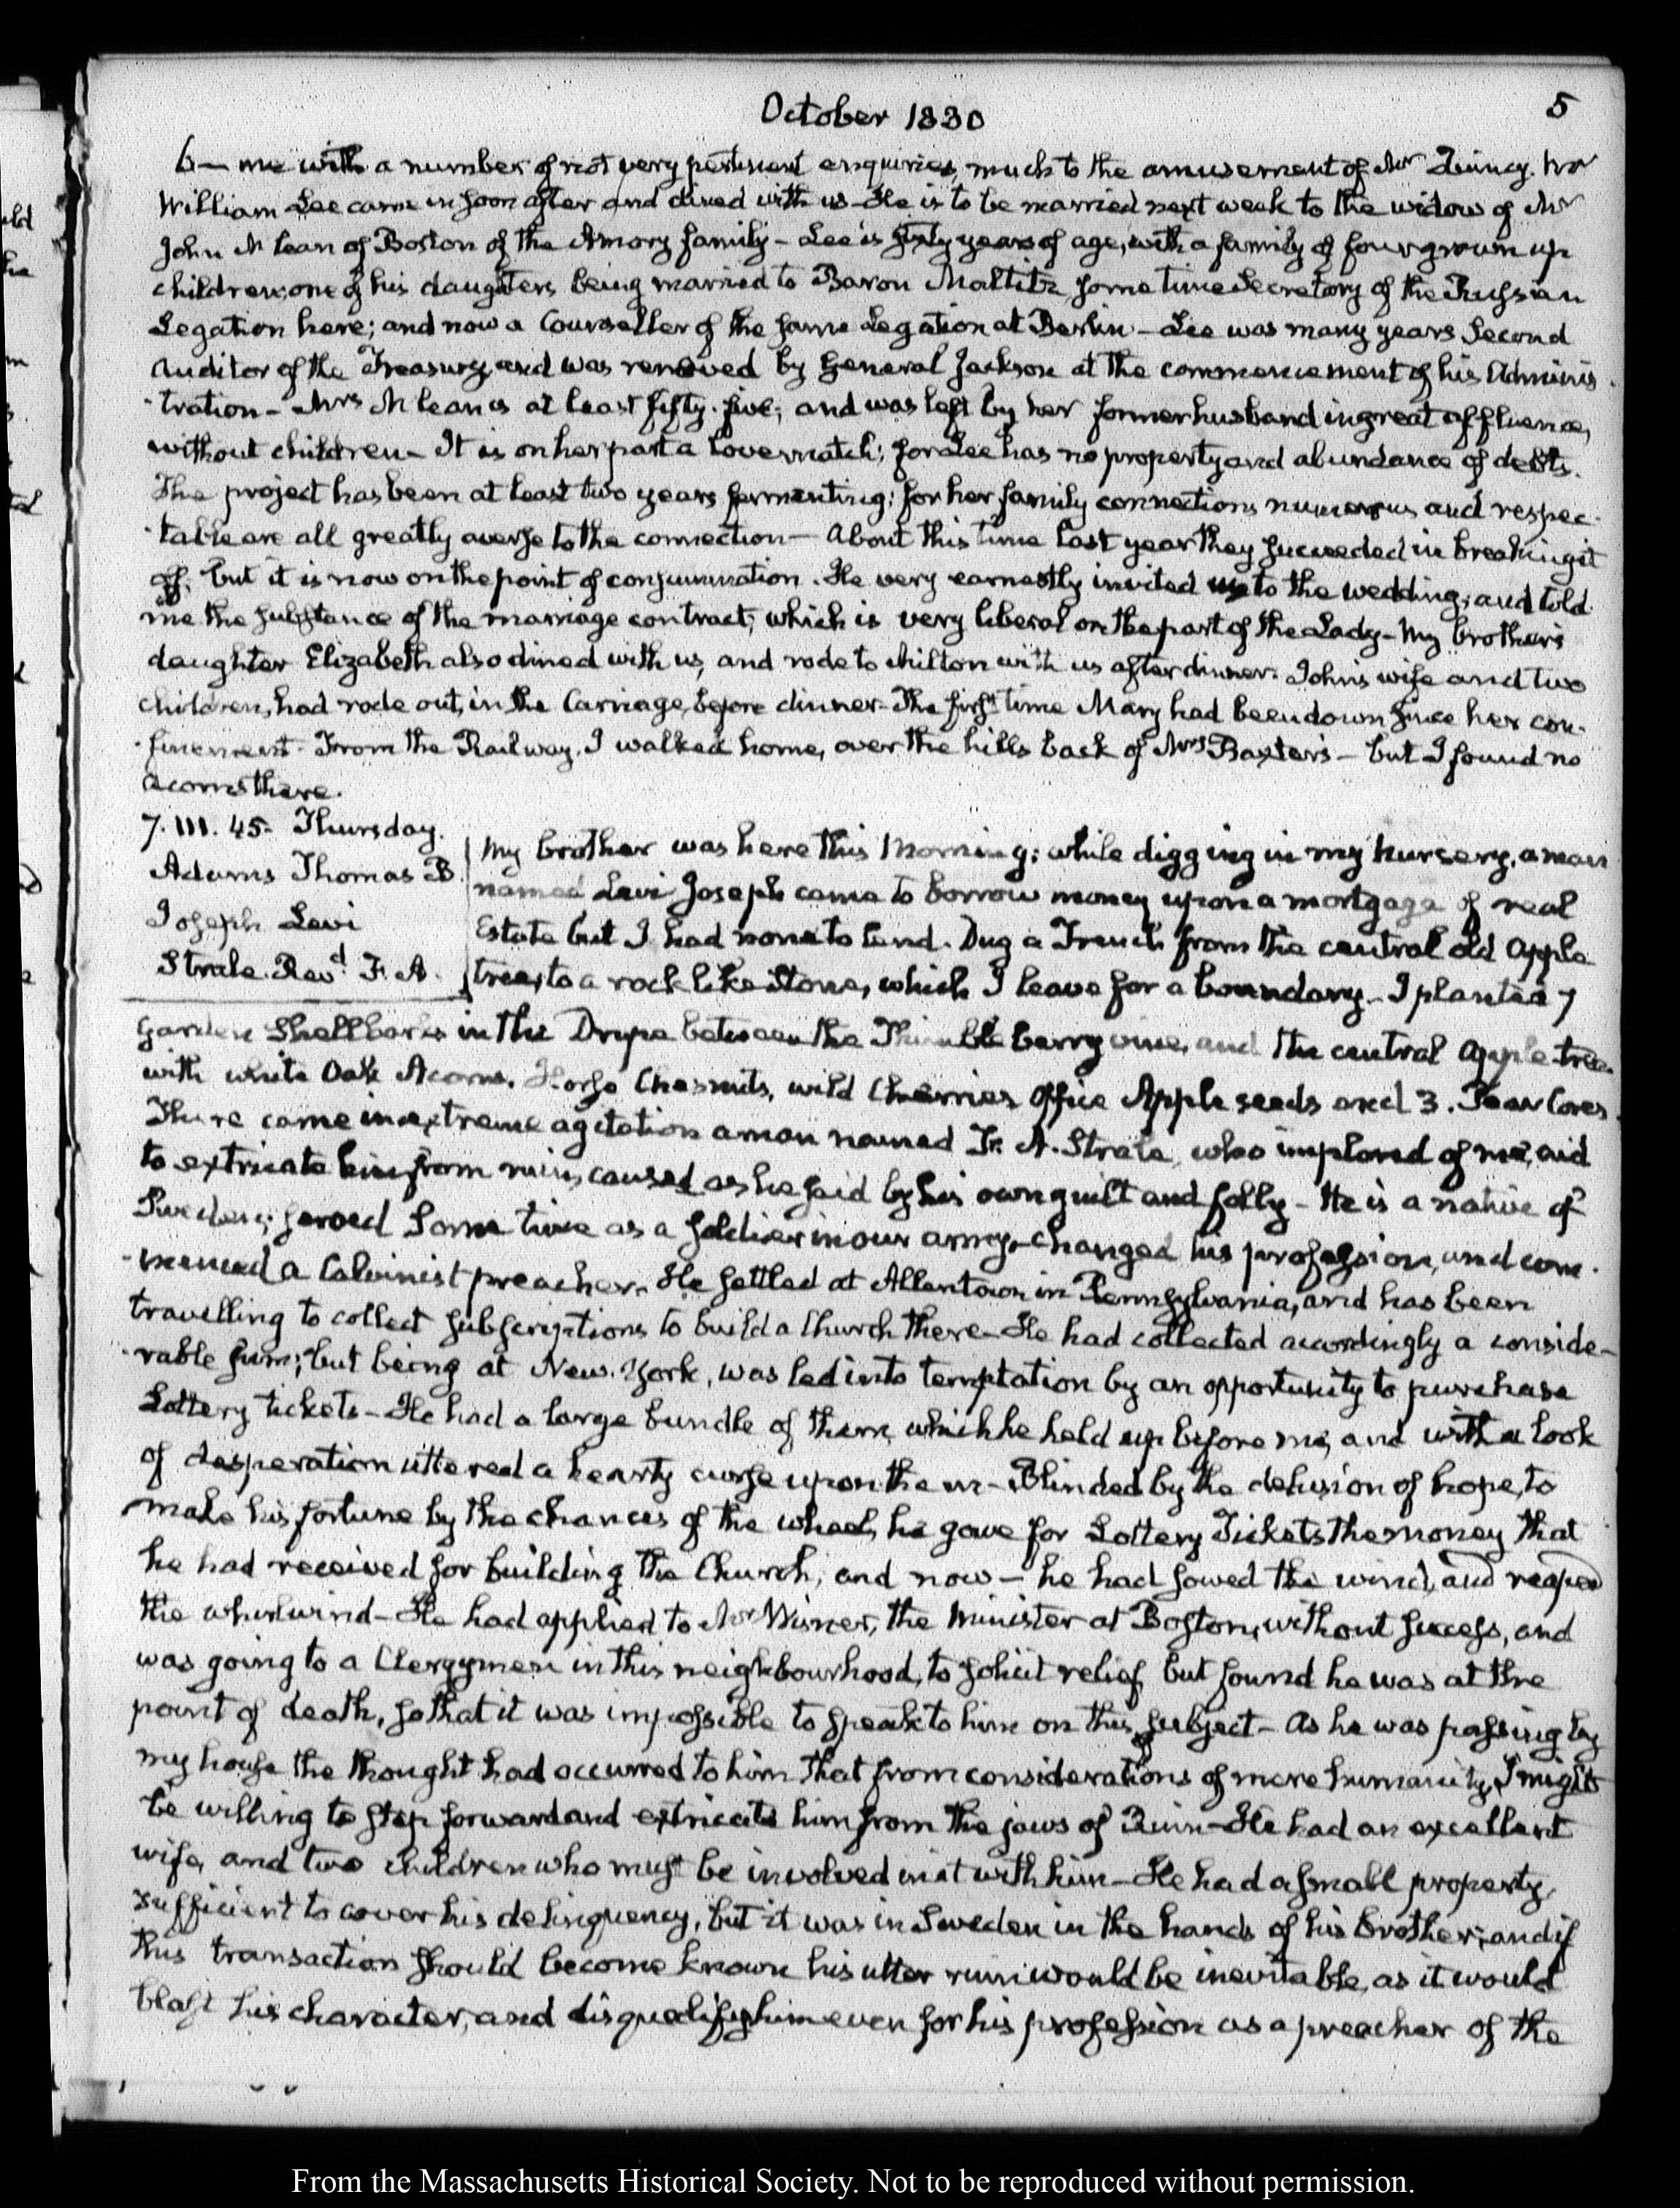 October 1830
5
6— me with a number of not very pertinent enquiries, much to the amusement of Mr Quincy. Mr
William Lee came in soon after and dined with us— He is to be married next week to the widow of Mr
John McLean of Boston of the Amory family— Lee is sixty years of age, with a family of four grown up
children; one of his daughters being married to Baron Maltitz some time Secretary of the Russian
Legation here; and now a Counsellor of the same Legation at Berlin— Lee was many years Second
Auditor of the Treasury, and was removed by General Jackson at the commencement of his Adminis-
-tration— Mrs McLean is at least fifty-five; and was left by her former husband in great affluence,
without children— It is on her part a love match; for Lee has no property and abundance of debts.
The project has been at least two years fermenting; for her family connections numerous and respec-
-table are all greatly averse to the connection— About this time last year they succeeded in breaking it
off; but it is now on the point of consummation. He very earnestly invited us to the wedding; and told
me the substance of the marriage contract, which is very liberal on the part of the Lady— My brother's
daughter Elizabeth also dined with us, and rode to Milton with us after dinner. John's wife and two
children, had rode out, in the Carriage, before dinner— The first time Mary had been down since her con-
-finement— From the Railway, I walked home, over the hills back of Mrs Baxter's— but I found no
acorns there.
7. III. 45. Thursday.
Adams Thomas B.
Joseph Levi
Strale. Revd. F. A.
My brother was here this Morning; while digging in my nursery, a man
named Levi Joseph came to borrow money upon a mortgage of real
Estate but I had none to lend. Dug a Trench from the central old Apple
tree, to a rock like Stone, which I leave for a boundary— I planted 7
garden Shellbarks in the Drupe between the Thimble berry vine, and the central Apple tree
with white Oak Acorns, Horse Chesnuts, wild Cherries Office Apple seeds and 3. Pear Cores.
There came in extreme agitation a man named F. A. Strale, who implored of me, aid
to extricate him from ruin, caused as he said by his own guilt and folly— He is a native of
Sweden; served some time as a soldier in our army— changed his profession, and com-
-menced a Calvinist preacher. He settled at Allentown in Pennsylvania, and has been
travelling to collect subscriptions to build a Church there— He had collected accordingly a conside-
-rable sum; but being at New-York, was led into temptation by an opportunity to purchase
Lottery tickets— He had a large bundle of them, which he held up before me, and with a look
of desperation uttered a hearty curse upon them— Blinded by the delusion of hope, to
make his fortune by the chances of the wheel, he gave for Lottery Tickets the money that
he had received for building the Church, and now— he had sowed the wind, and reaped
the whirlwind— He had applied to Mr Wisner, the Minister at Boston, without success, and
was going to a Clergyman in this neighbourhood, to solicit relief, but found he was at the
point of death, so that it was impossible to speak to him on this subject— As he was passing by
my house the thought had occurred to him that from considerations of mere humanity, I might
be willing to step forward and extricate him from the jaws of Ruin— He had an excellent
wife, and two children who must be involved in it with him— He had a small property,
sufficient to cover his delinquency, but it was in Sweden in the hands of his brother; and if
this transaction should become known his utter ruin would be inevitable, as it would
blast his character, and disqualify him even for his profession as a preacher of the
From the Massachusetts Historical Society. Not to be reproduced without permission.